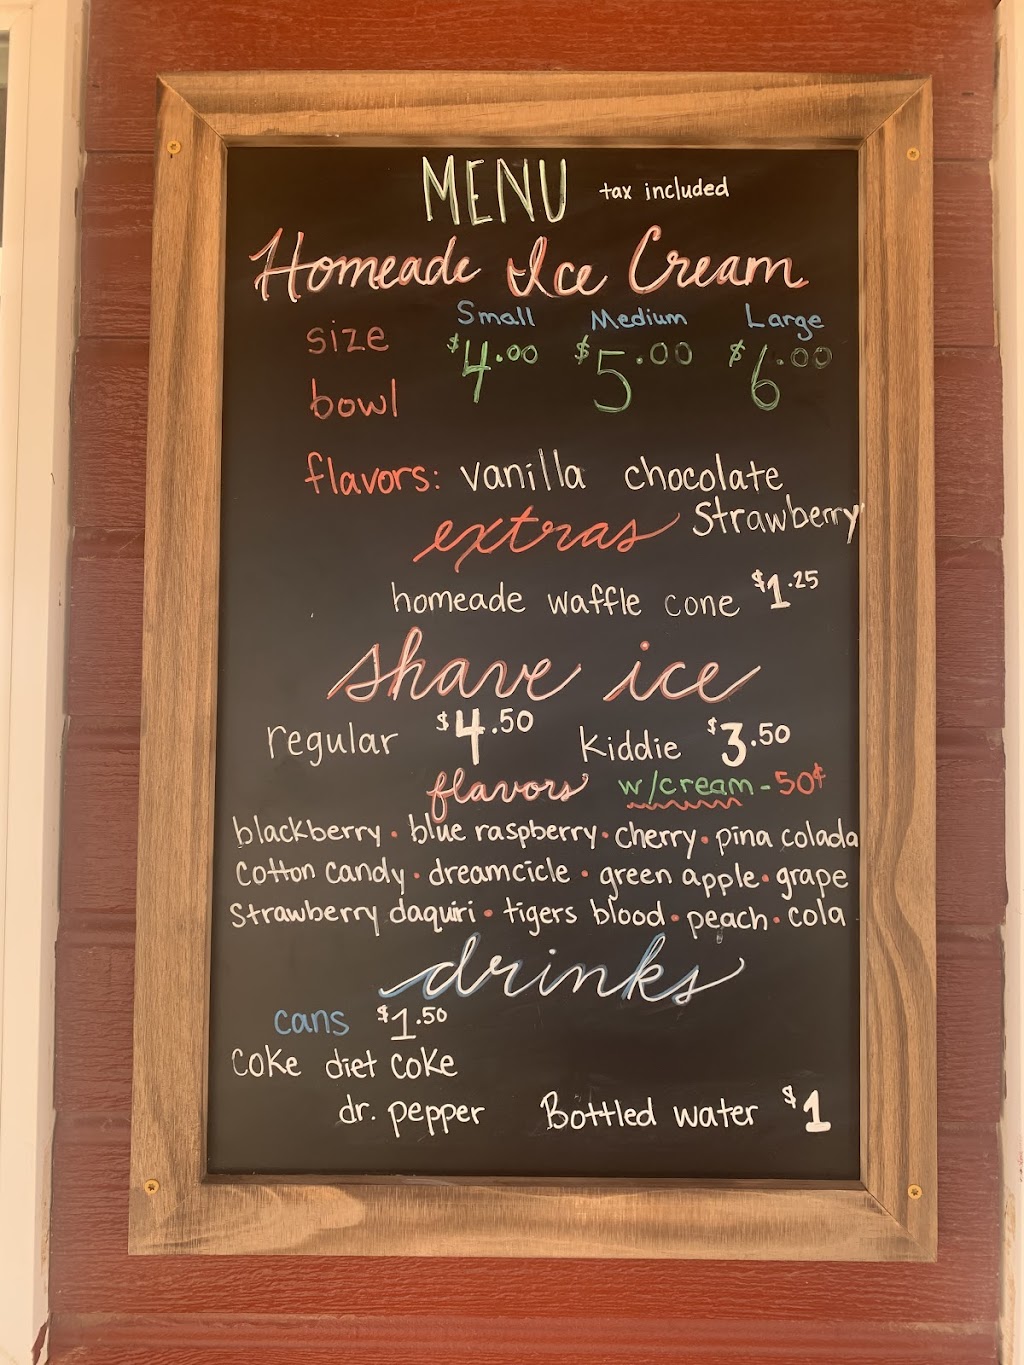 MENU tax included
Homeade Ice Cream
Small Medium Large
size $4.00 $5.00 $6.00
bowl
flavors: vanilla chocolate
Strawberry
extras
homeade waffle cone $1.25
shave ice
regular $4.50 kiddie $3.50
flavors w/cream - 50¢
blackberry • blue raspberry • cherry • pina colada
cotton candy • dreamcicle • green apple • grape
Strawberry daquiri • tigers blood • peach • cola
drinks
cans $1.50
coke diet coke
dr. pepper Bottled water $1